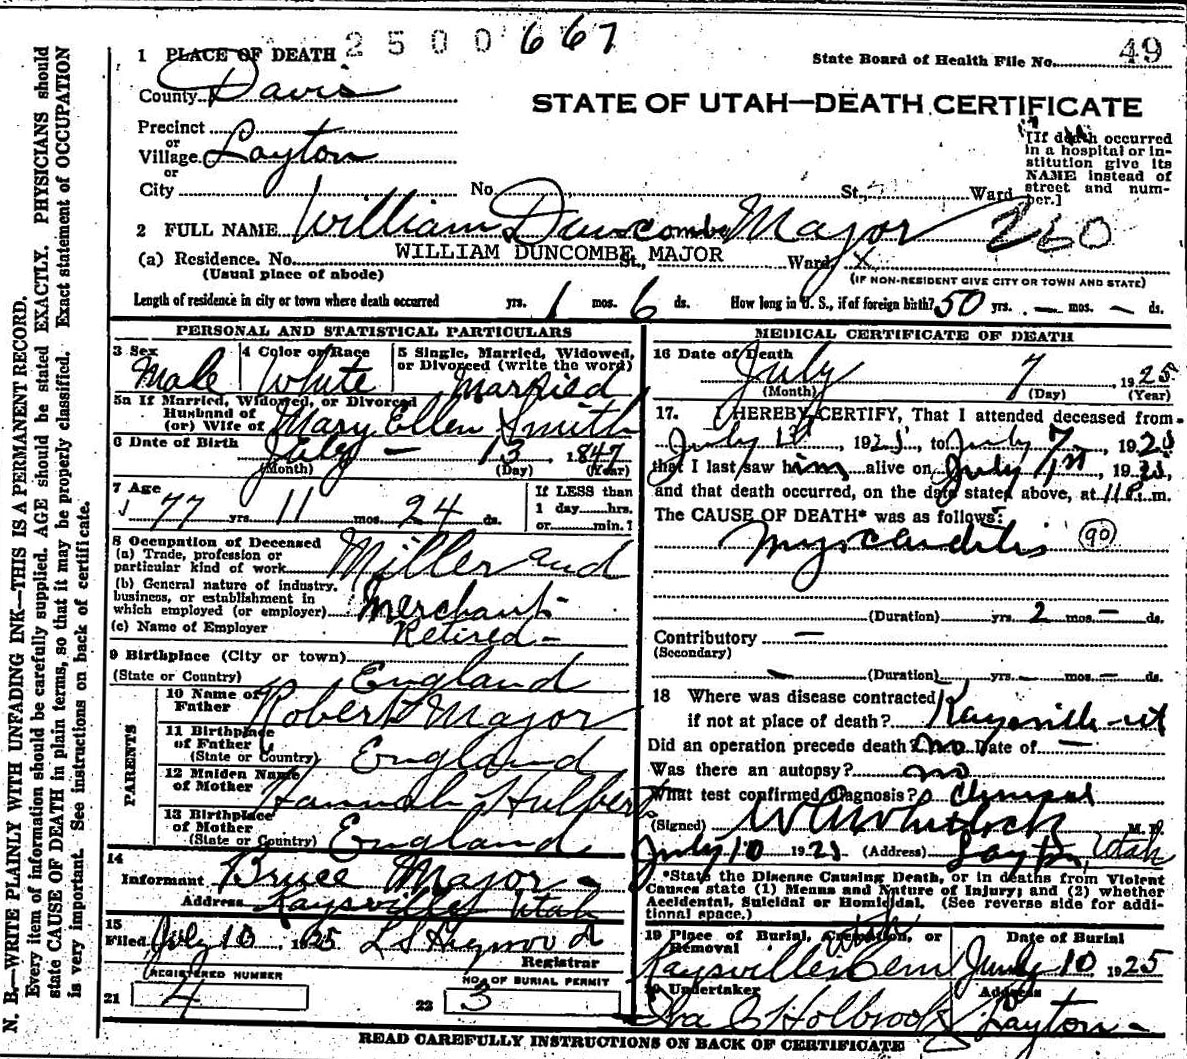 2500 667
1 PLACE OF DEATH
State Board of Health File No. 49
County Davis
STATE OF UTAH—DEATH CERTIFICATE
Precinct
or
Village Layton
or
City No. St., Ward
[If death occurred
in a hospital or in-
stitution give its
NAME instead of
street and num-
ber.]
2 FULL NAME William Duncombe Major 260
WILLIAM DUNCOMBE MAJOR
(a) Residence. No. St., Ward, x
(Usual place of abode) (IF NON-RESIDENT GIVE CITY OR TOWN AND STATE)
Length of residence in city or town where death occurred yrs. 1 mos. 6 ds. How long in U. S., if of foreign birth? 50 yrs. — mos. — ds.
PERSONAL AND STATISTICAL PARTICULARS
3 Sex 4 Color or Race 5 Single, Married, Widowed,
or Divorced (write the word)
Male White Married
5a If Married, Widowed, or Divorced
Husband of
(or) Wife of Mary Ellen Smith
6 Date of Birth July — 13 1847
(Month) (Day) (Year)
7 Age
77 yrs. 11 mos. 24 ds.
If LESS than
1 day......hrs.
or......min.?
8 Occupation of Deceased
(a) Trade, profession or
particular kind of work Miller and
(b) General nature of industry,
business, or establishment in
which employed (or employer) Merchant-
(c) Name of Employer Retired —
9 Birthplace (City or town)
(State or Country) England
PARENTS
10 Name of
Father Robert Major
11 Birthplace
of Father
(State or Country) England
12 Maiden Name
of Mother Hannah Hulbert
13 Birthplace
of Mother
(State or Country) England
14
Informant Bruce Major -
Address Kaysville Utah
15
Filed July 10 1925 L S Heywood
Registrar
REGISTERED NUMBER NO. OF BURIAL PERMIT
21 4 22 3
MEDICAL CERTIFICATE OF DEATH
16 Date of Death
July 7, 1925
(Month) (Day) (Year)
17. I HEREBY CERTIFY, That I attended deceased from
July 1st, 1925, to July 7, 1925
that I last saw him alive on July 1st, 1925,
and that death occurred, on the date stated above, at 11 P. m.
The CAUSE OF DEATH* was as follows:
Myocarditis (90)
(Duration) yrs. 2 mos. — ds.
Contributory —
(Secondary)
(Duration) yrs. — mos. — ds.
18 Where was disease contracted
if not at place of death? Kaysville-ut
Did an operation precede death? no Date of —
Was there an autopsy? no
What test confirmed diagnosis? Clinical
(Signed) W A Whitlock M. D.
July 10 1925 (Address) Layton, Utah
*State the Disease Causing Death, or in deaths from Violent
Causes state (1) Means and Nature of Injury; and (2) whether
Accidental, Suicidal or Homicidal. (See reverse side for addi-
tional space.)
19 Place of Burial, Cremation, or
Removal
Date of Burial
Kaysville Cem July 10 1925
20 Undertaker Address
Iva C Holbrook Layton -
READ CAREFULLY INSTRUCTIONS ON BACK OF CERTIFICATE
N. B.—WRITE PLAINLY WITH UNFADING INK—THIS IS A PERMANENT RECORD.
Every item of information should be carefully supplied. AGE should be stated EXACTLY. PHYSICIANS should
state CAUSE OF DEATH in plain terms, so that it may be properly classified. Exact statement of OCCUPATION
is very important. See instructions on back of certificate.